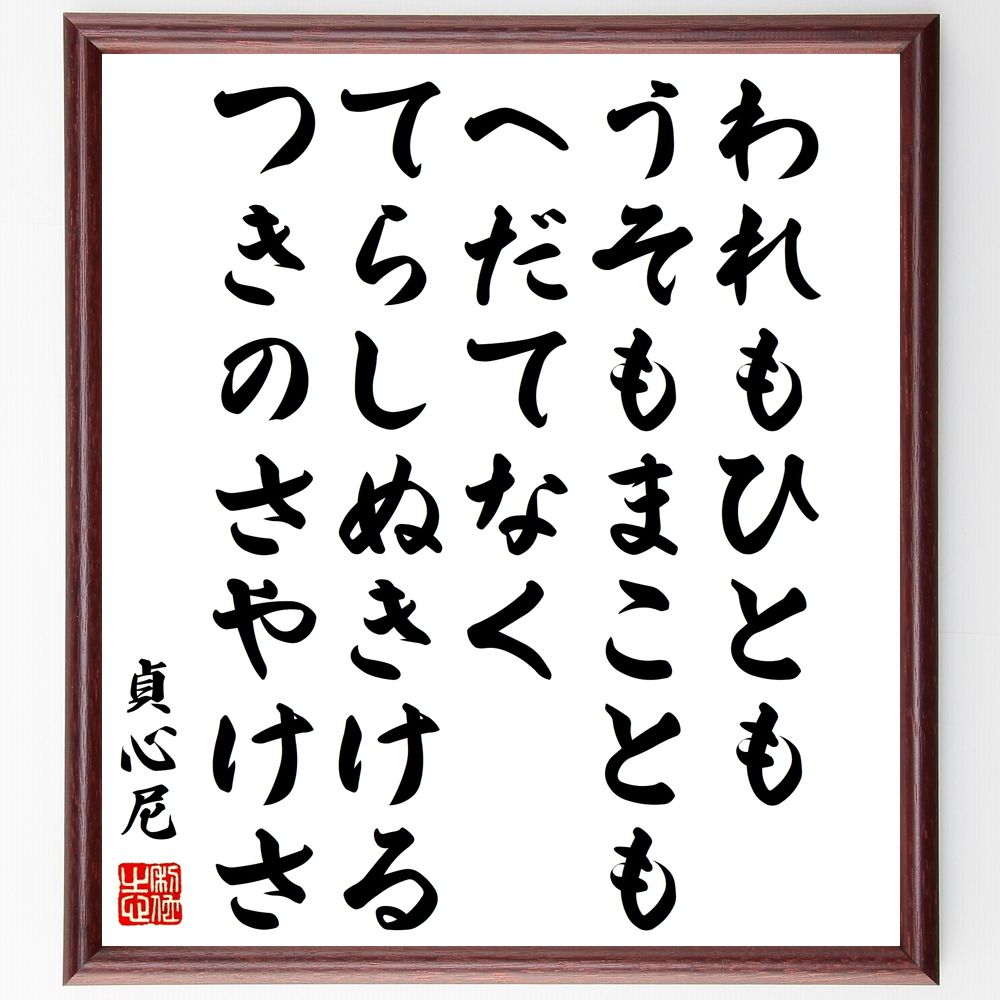 われもひとも
うそもまことも
へだてなく
てらしぬきける
つきのさやけさ
貞心尼